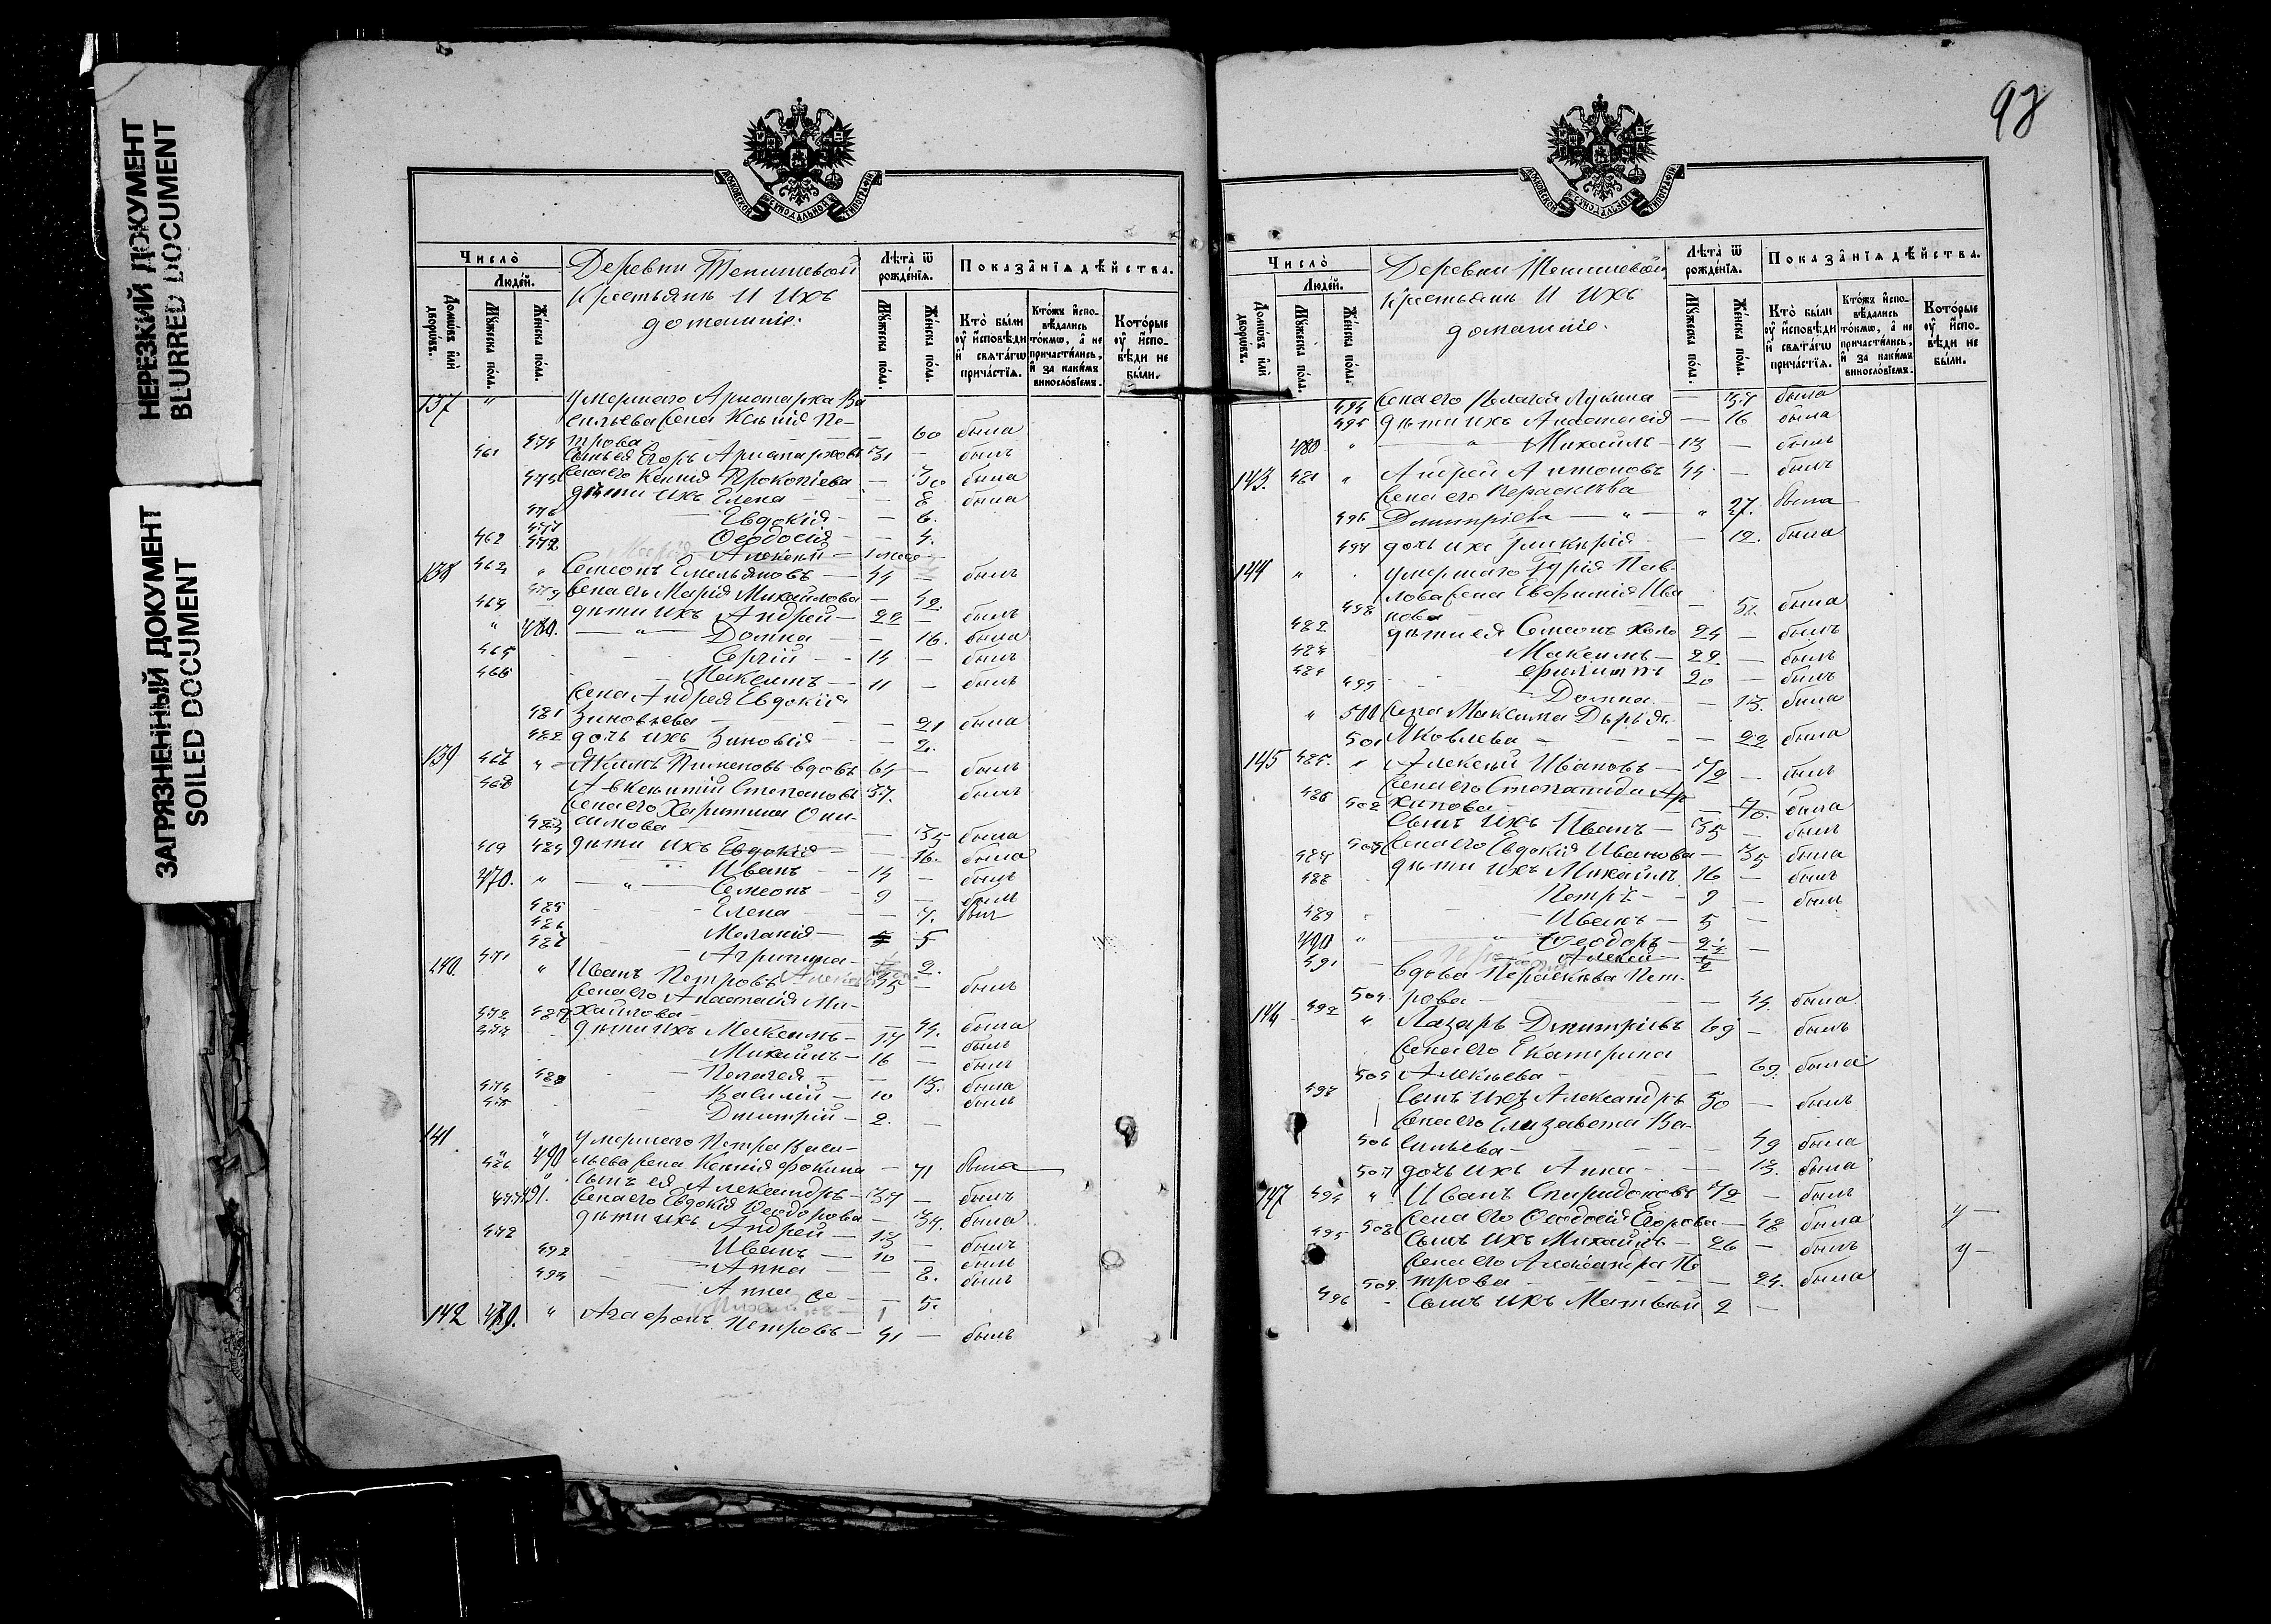 НЕРЕЗКИЙ ДОКУМЕНТ
BLURRED DOCUMENT
ЗАГРЯЗНЕННЫЙ ДОКУМЕНТ
SOILED DOCUMENT
Число̀
Людéй.
Домѡ́въ и҆лѝ дворѡ́въ.
Мꙋ́жеска по́ла.
Же́нска по́ла.
Деревни
Крестьяне и ихъ
домашніе.
Лѣта̀ ѿ рожде́нїѧ.
Мꙋ́жеска по́ла.
Же́нска по́ла.
Показа̑нїѧ дѣ́йства.
Кто̀ бы́ли
ᲂу҆ и҆сповѣди
и҆ свѧта́гѡ
прича́стїѧ.
Кто́жъ и҆спо-
вѣдались
то́кмѡ, а҆ не
причасти́лись,
и҆ за каки́мъ
винослóвїемъ.
Кото́рые
ᲂу҆ и҆спо-
вѣди не
бы́ли.
137 умершаго Аристарха Ва
сильева жена Ксенія Пе-
474 трова — 60 была
461 сынъ ея Егоръ Аристарховъ 31 — былъ
475 жена его Ксенія Прокопіева — 30 была
476 дѣти ихъ Елена — 8 была
477 Евдокія — 6.
478 Ѳеодосія — 4.
462 Алексѣй
138 Семеонъ Емельяновъ — 44 — былъ
479 жена его Марія Михайлова — 42.
464 дѣти ихъ Андрей — 22 — былъ
480. Домна — 16. была
465 Сергій — 14 — былъ
466 Максимъ — 11 — былъ
жена Андрея Евдокія
481 Зиновьева — 21 была
482 дочь ихъ Зиновія — 2.
139 467 Якимъ Пименовъ вдовъ 64 — былъ
468 Авксентій Степановъ 37. былъ
жена его Харитина Они-
483 симова — 35 была
484 дѣти ихъ Евдокія — 16. была
469 Иванъ — 14 — былъ
470. Семеонъ — 9 — былъ
485 Елена — 7.
486 Меланія — 5
487 Агрипина — 2.
140. 471 Иванъ Петровъ 45 — былъ
жена его Анастасія Ми-
488 хайлова — 44. была
472 дѣти ихъ Максимъ — 17 — былъ
473 Михаилъ — 16 — былъ
489 Пелагея — 13. была
474 Василій — 10 былъ
475 Дмитрій — 2. —
141 умершаго Петра Васи-
490 льева жена Ксенія Фокина — 71 была
476 сынъ ея Александръ — 37 — былъ
491. жена его Евдокія Ѳеодорова — 34. была
477 дѣти ихъ Андрей — 13 — былъ
478 Иванъ — 10 — былъ
492 Анна — 8. былъ
493 Анна — 5.
142 479. Агафонъ Петровъ — 41 — былъ
98
Число̀
Людéй.
Домѡ́въ и҆лѝ дворѡ́въ.
Мꙋ́жеска по́ла.
Же́нска по́ла.
Деревни
Крестьяне и ихъ
домашніе.
Лѣта̀ ѿ рожде́нїѧ.
Мꙋ́жеска по́ла.
Же́нска по́ла.
Показа̑нїѧ дѣ́йства.
Кто̀ бы́ли
ᲂу҆ и҆сповѣди
и҆ свѧта́гѡ
прича́стїѧ.
Кто́жъ и҆спо-
вѣдались
то́кмѡ, а҆ не
причасти́лись,
и҆ за каки́мъ
винослóвїемъ.
Кото́рые
ᲂу҆ и҆спо-
вѣди не
бы́ли.
494 жена его Пелагея Лукина — 37 была
495 дѣти ихъ Анастасія — 16 была
480 Михаилъ — 13 — былъ
143. 481 Андрей Антоновъ 44 — былъ
жена его Параскѣва
496 Димитріева — 27. была
497 дочь ихъ Гликерія — 12. была
144 умершаго Гурія Пав-
лова жена Евфимія Ива
498 нова — 51. была
482 дѣти ея Семеонъ холо 24 — былъ
483 Максимъ — 22 — былъ
484 Филиппъ 20 — былъ
499 Домна — 13. была
500 жена Максима Дарья
501 Яковлева — 22 была
145 485. Алексѣй Ивановъ — 72 — былъ
жена его Степанида Ар
502 хипова — 70. была
486 сынъ ихъ Иванъ — 35 — былъ
503 жена его Евдокія Иванова — 35 была
487 дѣти ихъ Михаилъ 16 — былъ
488 Петръ — 9 — былъ
489 Иванъ — 5 —
490 Ѳеодоръ — 2 —
491 Алексѣй
вдова Параскѣва Пет-
504. рова — 44. была
146 492 Лазарь Дмитріевъ 69 — былъ
жена его Екатерина
505 Алексѣева — 69. была
493 сынъ ихъ Александръ 50 — былъ
жена его Елизавета Ва-
506 сильева — 49 была
507 дочь ихъ Анна — 13. была
147 494 Иванъ Спиридоновъ 72 — былъ
508 жена его Ѳеодосія Егорова — 48 была
495 сынъ ихъ Михаилъ — 26 — былъ
жена его Александра Пе
509. трова — 24. была
496 сынъ ихъ Матвѣй 2 —